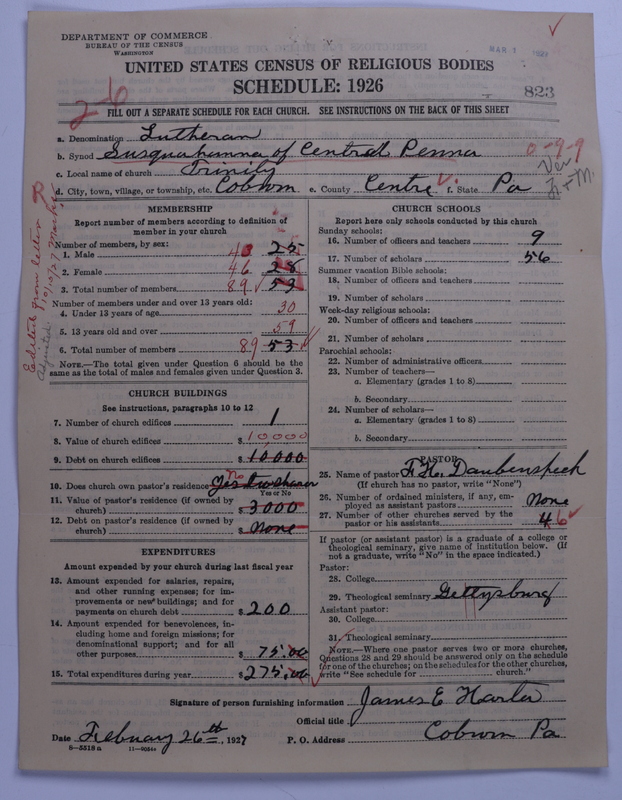 DEPARTMENT OF COMMERCE
BUREAU OF THE CENSUS
WASHINGTON
MAR 1
UNITED STATES CENSUS OF RELIGIOUS BODIES
SCHEDULE: 1926
823
2-6
FILL OUT A SEPARATE SCHEDULE FOR EACH CHURCH. SEE INSTRUCTIONS ON THE BACK OF THIS SHEET
a. Denomination Lutheran
b. Synod Susquehanna of Central Penna 0-9-9
c. Local name of church Trinity
d. City, town, village, or township, etc. Coburn e. County Centre f. State Pa
Edited from letter 10/10/27
Adjusted
MEMBERSHIP
Report number of members according to definition of
member in your church
Number of members, by sex:
1. Male 43 25
2. Female 46 28
3. Total number of members 89 53
Number of members under and over 13 years old:
4. Under 13 years of age 30
5. 13 years old and over 59
6. Total number of members 89 53
NOTE.—The total given under Question 6 should be the
same as the total of males and females given under Question 3.
CHURCH BUILDINGS
See instructions, paragraphs 10 to 12
7. Number of church edifices 1
8. Value of church edifices $ 10,000
9. Debt on church edifices $ 10,000
10. Does church own pastor's residence? No Yes
Yes or No
11. Value of pastor's residence (if owned by
church) $ 3000
12. Debt on pastor's residence (if owned by
church) $ None
EXPENDITURES
Amount expended by your church during last fiscal year
13. Amount expended for salaries, repairs,
and other running expenses; for im-
provements or new buildings; and for
payments on church debt $ 200
14. Amount expended for benevolences, in-
cluding home and foreign missions; for
denominational support; and for all
other purposes $ 75.00
15. Total expenditures during year $ 275.00
CHURCH SCHOOLS
Report here only schools conducted by this church
Sunday schools:
16. Number of officers and teachers 9
17. Number of scholars 56
Summer vacation Bible schools:
18. Number of officers and teachers
19. Number of scholars
Week-day religious schools:
20. Number of officers and teachers
21. Number of scholars
Parochial schools:
22. Number of administrative officers
23. Number of teachers—
a. Elementary (grades 1 to 8)
b. Secondary
24. Number of scholars—
a. Elementary (grades 1 to 8)
b. Secondary
PASTOR
25. Name of pastor F. H. Daubenspeck
(If church has no pastor, write "None")
26. Number of ordained ministers, if any, em-
ployed as assistant pastors None
27. Number of other churches served by the
pastor or his assistants 4 6
If pastor (or assistant pastor) is a graduate of a college or
theological seminary, give name of institution below. (If
not a graduate, write "No" in the space indicated.)
Pastor:
28. College
29. Theological seminary Gettysburg
Assistant pastor:
30. College
31. Theological seminary
NOTE.—Where one pastor serves two or more churches,
Questions 28 and 29 should be answered only on the schedule
for one of the churches; on the schedules for the other churches,
write "See schedule for church."
Signature of person furnishing information James E Harter
Official title
Date February 26th, 1927 P. O. Address Coburn Pa
8—5518 a